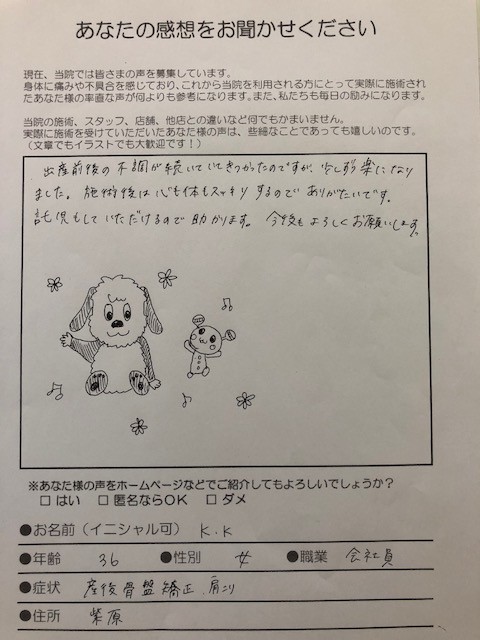 あなたの感想をお聞かせください
現在、当院では皆さまの声を募集しています。
身体に痛みや不具合を感じており、これから当院を利用される方にとって実際に施術され
たあなた様の率直な声が何よりも参考になります。また、私たちも毎日の励みになります。
当院の施術、スタッフ、店舗、他店との違いなど何でもかまいません。
実際に施術を受けていただいたあなた様の声は、些細なことであっても嬉しいのです。
(文章でもイラストでも大歓迎です!)
出産前後の不調が続いていてきつかったのですが、少しずつ楽になり
ました。施術後は心も体もスッキリするのでありがたいです。
託児もしていただけるので助かります。今後もよろしくお願いします。
※あなた様の声をホームページなどでご紹介してもよろしいでしょうか?
□ はい □ 匿名ならOK □ ダメ
●お名前(イニシャル可) K.K
●年齢 36 ●性別 女 ●職業 会社員
●症状 産後骨盤矯正、肩こり
●住所 紫原